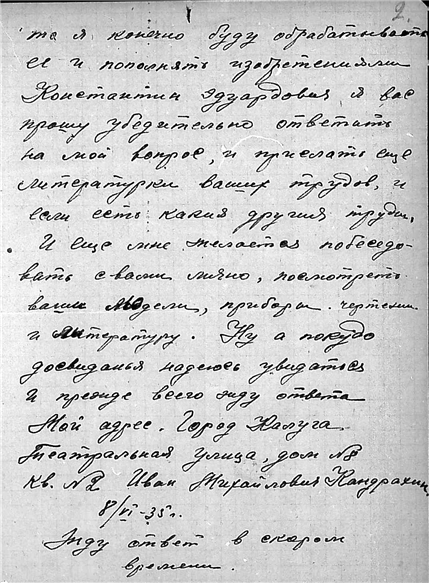 2.
та я конечно буду обрабатывать
ее и пополнять изобретениями
Константин Эдуардович я вас
прошу убедительно ответить
на мой вопрос, и прислать еще
литературки ваших трудов, и
если есть какия другия труды.
И еще мне желается побеседо-
вать с вами лично, посмотреть
ваши модели, приборы. чертежи
и литературу. Ну а покудо
досвиданья надеюсь увидаться
и прежде всего жду ответа
Мой адрес. Город Калуга
Театральная улица, дом №8
кв. №2 Иван Михайлович Кандрахин
8/VI-35г.
Жду ответ в скаром
времени.